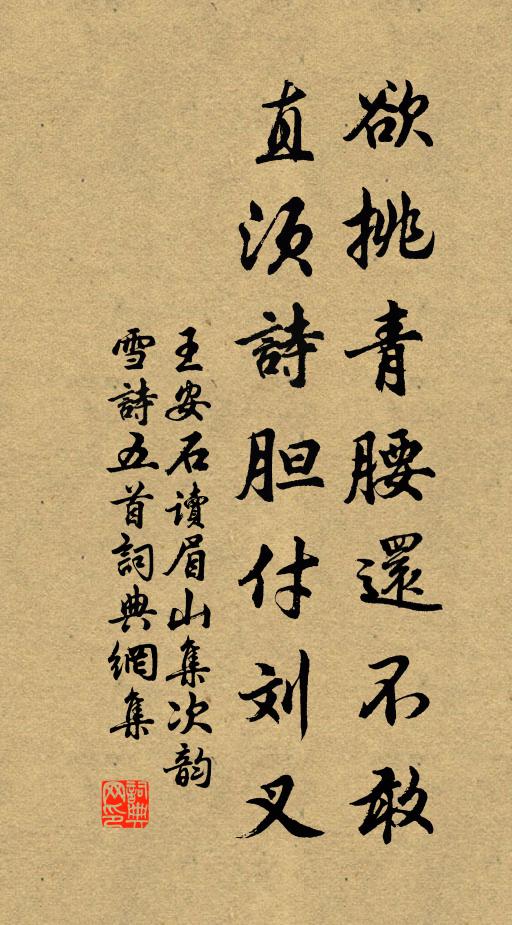 欲挑青腰還不敢
直須詩胆付刘叉
王安石讀眉山集次韵
雪詩五首詞典網集
詞典网印